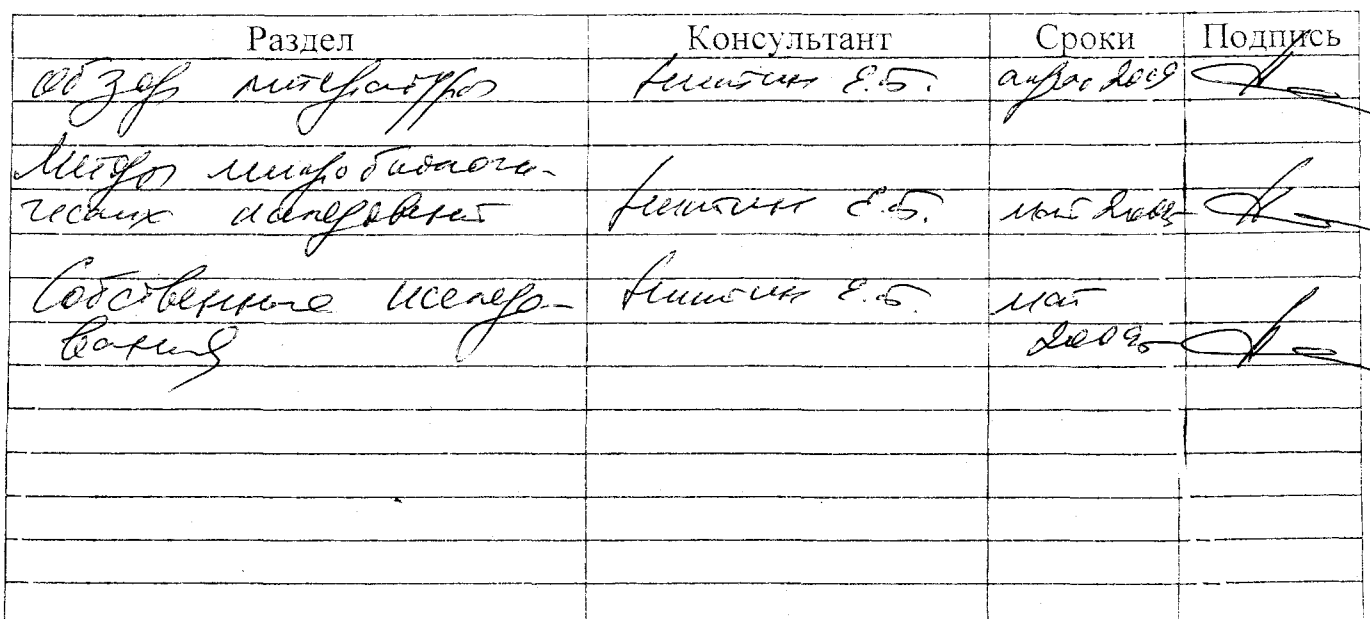 Раздел Консультант Сроки Подпись
Обзор литературы Никитин Е.Б. апрель 2009
Методы микробиологи-
ческих исследований Никитин Е.Б. май 2009
Собственные исследо- Никитин Е.Б. май
вания 2009